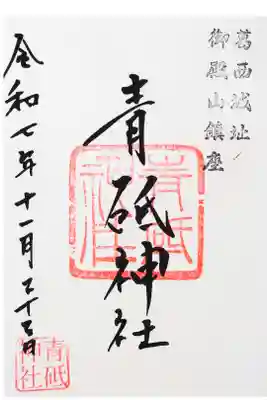 葛西城址
御殿山鎮座
青砥神社
令和七年十一月二十三日
青砥神社
青砥神社